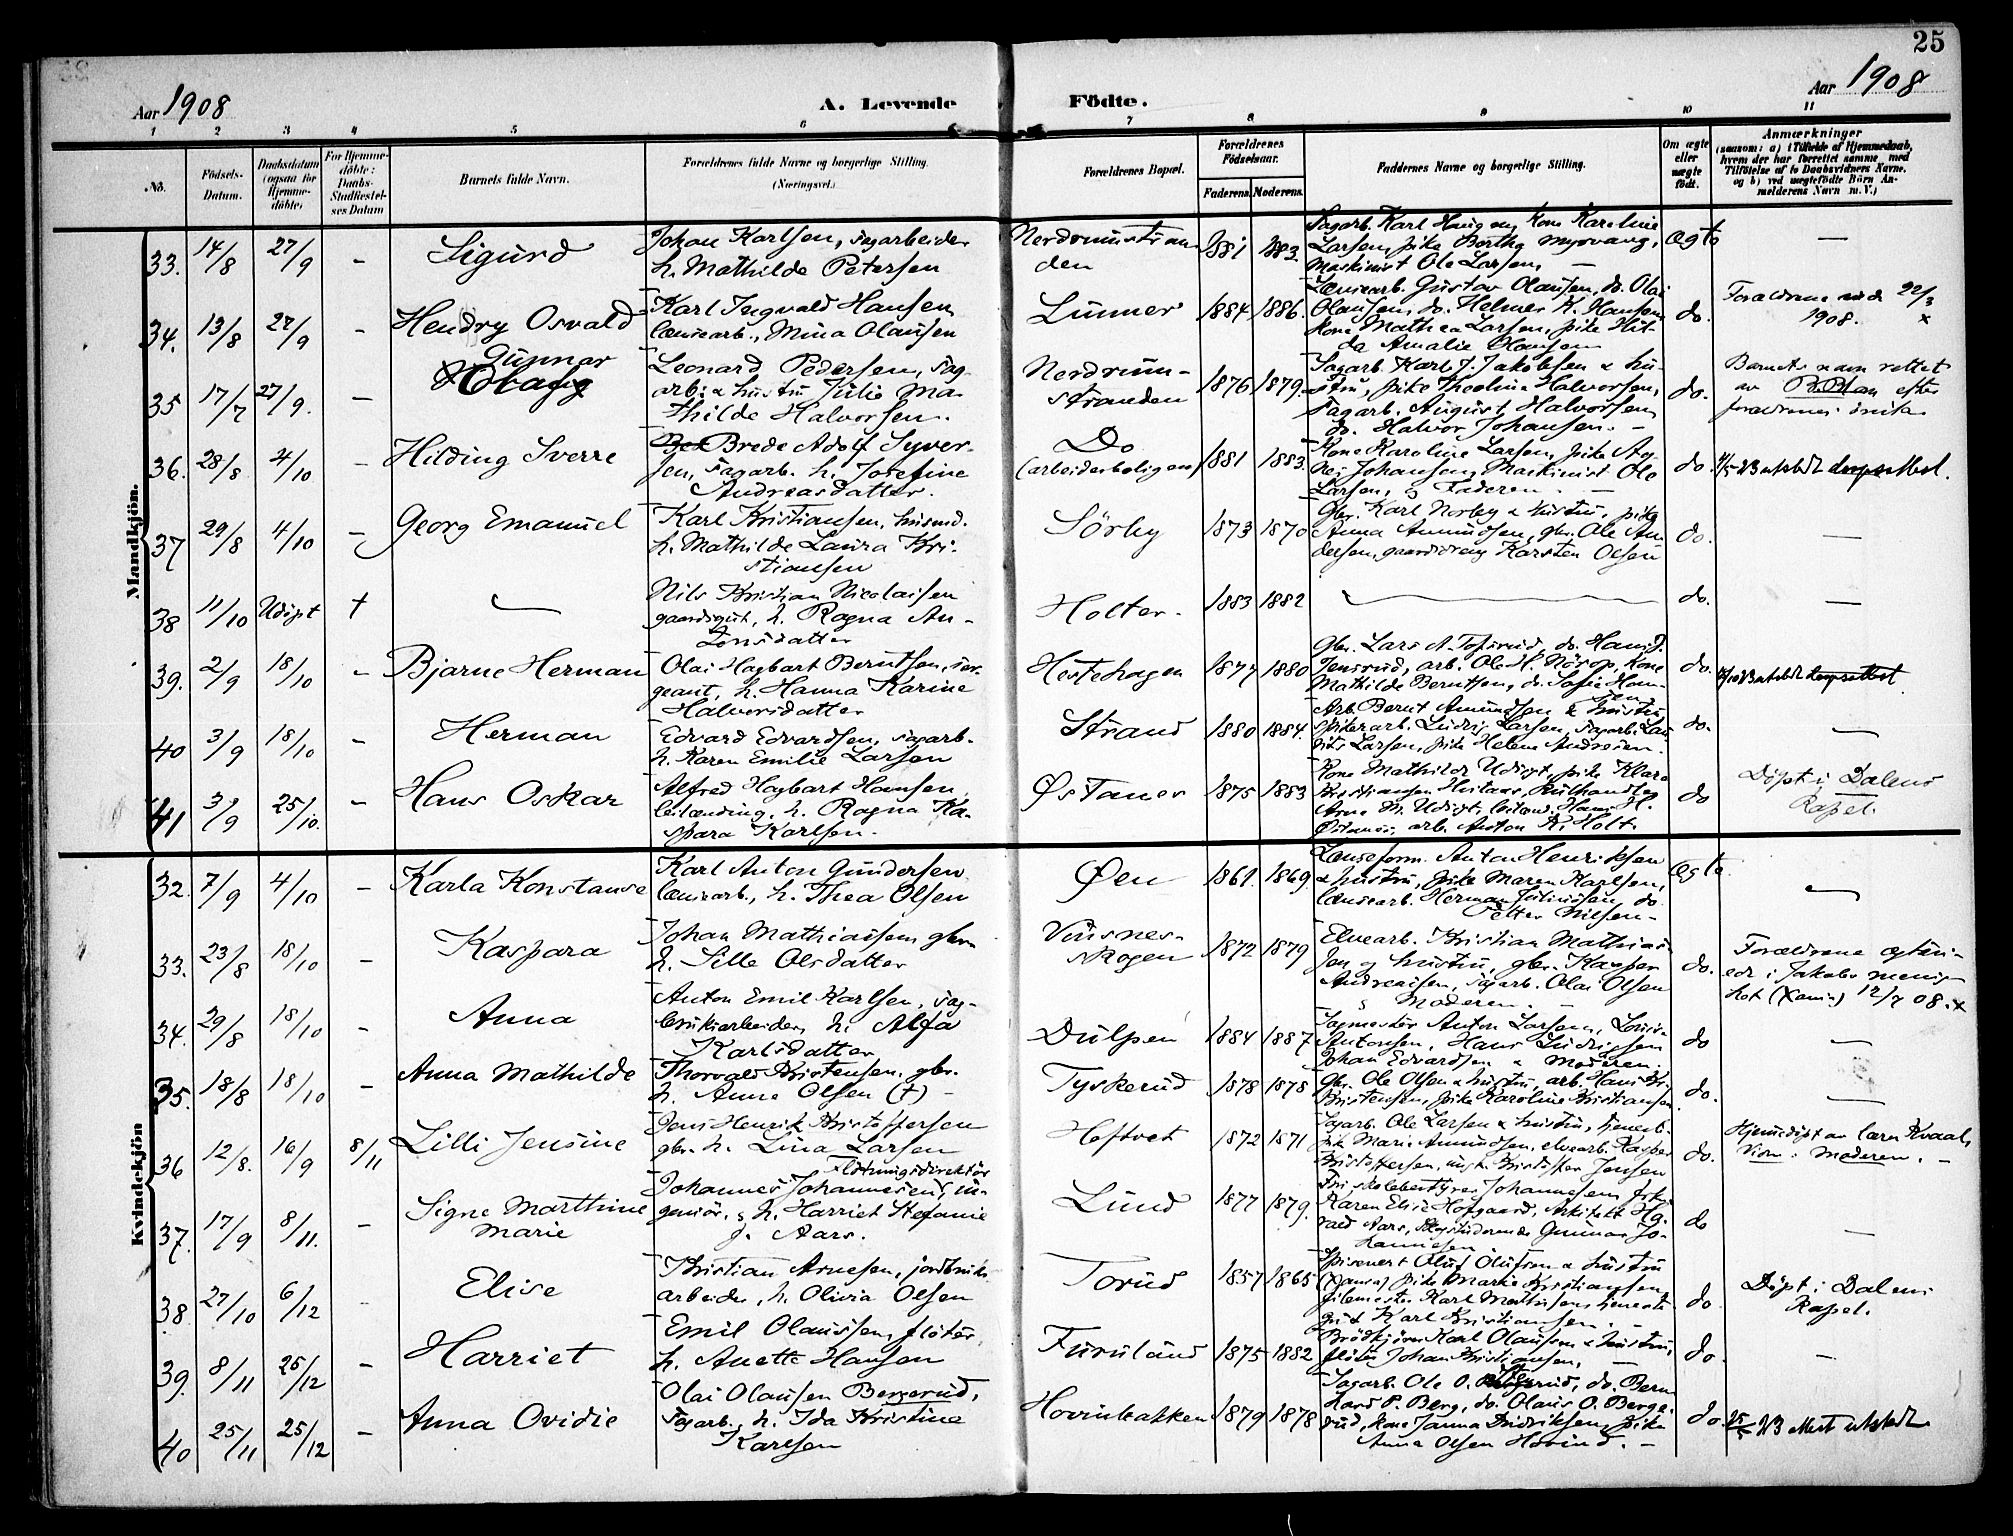 25
Aar 1908
A. Levende
Födte.
Aar 1908
1 2 3 4 5 6 7 8 9 10 11
No.
Födsels-
Datum.
Daabsdatum
(ogsaa for
Hjemme-
döbte)
For Hjemme-
döbte:
Daabs-
Stadfæstel-
ses Datum
Barnets fulde Navn.
Forældrenes fulde Navne og borgerlige Stilling.
(Næringsvei.)
Forældrenes Bopæl.
Forældrenes
Födselsaar.
Faderens. Moderens.
Faddernes Navne og borgerlige Stilling.
Om ægte
eller
uægte
födt.
Anmærkninger
(saasom: a) i Tilfælde af Hjemmedaab,
hvem der har forrettet samme, med
Tilföielse af to Daabsvidners Navne,
og b) ved uægtefödte Börn An-
melderens Navn m. V.)
Mandkjön.
33. 14/8 27/9 - Sigurd
Johan Karlsen, sagarbeider
h. Mathilde Petersen
Nerdrumstran
den
1881 1883.
Sagarb. Karl Haugen, kone Karoline
Larsen, pike Borthg Myrvang,
Maskinist Ole Larsen. -
ægte -
34. 13/8 27/9 - Hendry Osvald
Karl Ingvald Hansen
lænsearb., Mina Olausen
Lunner 1884 1886.
Lænsearb. Gustav Olausen, do. Olai
Olausen, do. Helmer K. Hansen,
kone Mathea Larsen, pike Hil-
da Amalie Olausen
do.
Forældrene viede 22/3
1908. x
35 17/7 27/9. - Gunnar
Olaf
Leonard Pedersen, sag-
arb. & hustru Julie Ma-
thilde Halvorsen.
Nerdrum-
stranden
1876 1879.
Sagarb. Karl J. Jakobsen & hu-
stru, pike Thooline Halvorsen,
sagarb. August Halvorsen,
do. Halvor Johansen. -
do.
Barnets navn rettet
av efter
forældrenes önske
36. 28/8 4/10 - Hilding Sverre
Brede Adolf Syver-
sen, sagarb. h. Josefine
Andreasdatter.
Do
(arbeiderboligen)
1881 1883.
Kone Karoline Larsen, pike Ag-
nes Johansen, Maskinist Ole
Larsen, & Faderen. -
do.
37 29/8 4/10 - Georg Emanuel
Karl Kristiansen, husmd.
h. Mathilde Laura Kri-
stiansen
Sörby 1873 1870
Gbr. Karl Norby & hustru, pike
Anna Amundsen, gbr. Ole An-
dersen, gaardsdreng Karsten Olsen
do. -
38 11/10 Udöpt † -
Nils Kristian Nicolaisen
gaardsgut, h. Ragna An-
tonsdatter
Holter. 1883 1882
do. -
39. 2/9 18/10 - Bjarne Herman
Olai Hagbart Berntsen, ser-
geant, h. Hanna Karine
Halvorsdatter
Hestehagen 1877 1880
Gbr. Lars A. Tofsrud, do. Hans J.
Jensrud, arb. Ole H. Nörop, kone
Mathilde Berntsen, do. Sofie Han-
sen
do.
40 3/9 18/10 - Herman
Edvard Edvardsen, sagarb.
h. Karen Emilie Larsen
Strand 1880 1884.
Arb. Bernt Amundsen & hustru
spikerarb. Ludvig Larsen, sagarb. Lau-
rits Larsen, pike Helene Andresen.
do. -
41 3/9 25/10. - Hans Oskar
Alfred Hagbart Hansen
leilænding, h. Ragna Ka-
spara Karlsen.
Østaner 1875 1883
Kone Mathilde Udigt, pike Klara
Kristiansen
Arne M. Udigt, leilænd. Hans H.
Östaner, arb. Anton K. Holt.
do
Döpt i Dalens
Kapel.
Kvindekjön
32. 7/9 4/10 - Karla Konstanse
Karl Anton Gundersen
lænsearb., h. Thea Olsen
Øen 1861. 1869.
Lænseform. Anton Henriksen
& hustru, pike Maren Karlsen,
lænsearb. Herman Juliussen, do.
Petter Nilsen -
ægte. -
33. 23/8 18/10 - Kaspara
Johan Mathiassen, gbr.
h. Sille Olsdatter
Vinsnes-
skogen
1872 1879
Elvearb. Kristian Mathias-
sen og hustru, gbr. Kasper
Andreassen, sagarb. Olai Olsen
& Moderen. -
do.
Forældrene ægtevi-
ede i Jakobs menig-
het (Xania) 12/7 08. x
34. 29/8 18/10 - Anna
Anton Emil Karlsen, sag-
bruksarbeider, h. Alfa
Karlsdatter
Dulpen 1884 1887
Sagmester Anton Larsen, Louise
Antonsen, Hans Ludvigsen
Johan Edvardsen & Moderen.
do -
35. 18/8 18/10 - Anna Mathilde
Thorvald Kristensen, gbr.
h. Anne Olsen (†) -
Tyskerud 1878 1878
Gbr. Ole Olsen & hustru, arb. Hans Kr.
Kristensen, pike Karoline Kristiansen
do. -
36 12/8. 16/9 8/11 Lilli Jensine
Jens Henrik Kristoffersen
gbr. h. Lina Larsen
Heftvet 1872 1871
Sagarb. Ole Larsen & hustru, tjeneste-
pik Marie Amundsen, elvearb. Kasper
Kristoffersen, ungk. Kristoffer Jensen
do.
Hjemmedöpt av lærer Kvaal,
Vidne: Moderen. -
37. 17/9 8/11. - Signe Marthine
Marie
Flötningsdirektör
Johannes Johannesen, in-
geniör, & h. Harriet Stefanie
J. Aars.
Lund 1877 1879.
Skolebestyrer Johannesen, frk.
Karen Elise Hofgaard, Arkitekt Ha-
rald Aars, studerende Gunnar Jo-
hannesen
do -
38 27/10 6/12 - Elise
Kristian Arnesen, jordbruks
arbeider, h. Olivia Olsen
Torud 1857 1865
Spisevert Oluf Olufsen & hustru
(Xania) pike Marie Kristiansen,
filemester Karl Mathisen, tjeneste
gut Karl Kristiansen. -
do.
Döpt i Dalens
Kapel.
39. 8/11 25/12 - Harriet
Emil Olaussen, flöter,
h. Anette Hansen
Furuland 1875 1882
Brödkjörer Karl Olausen & hustru,
flöter Johan Kristiansen, -
do. -
40 25/11 25/12 - Anna Ovidie
Olai Olausen Bergerud,
sagarb., h. Ida Kristine
Karlsen
Hovinbakken 1879 1878
Sagarb. Ole O. do. Bern-
hard P. Berg, do. Olaus O. Berge-
rud, kone Janna Fridriksen, pike
Anna Olsen Hovind. -
do. attest utstedt